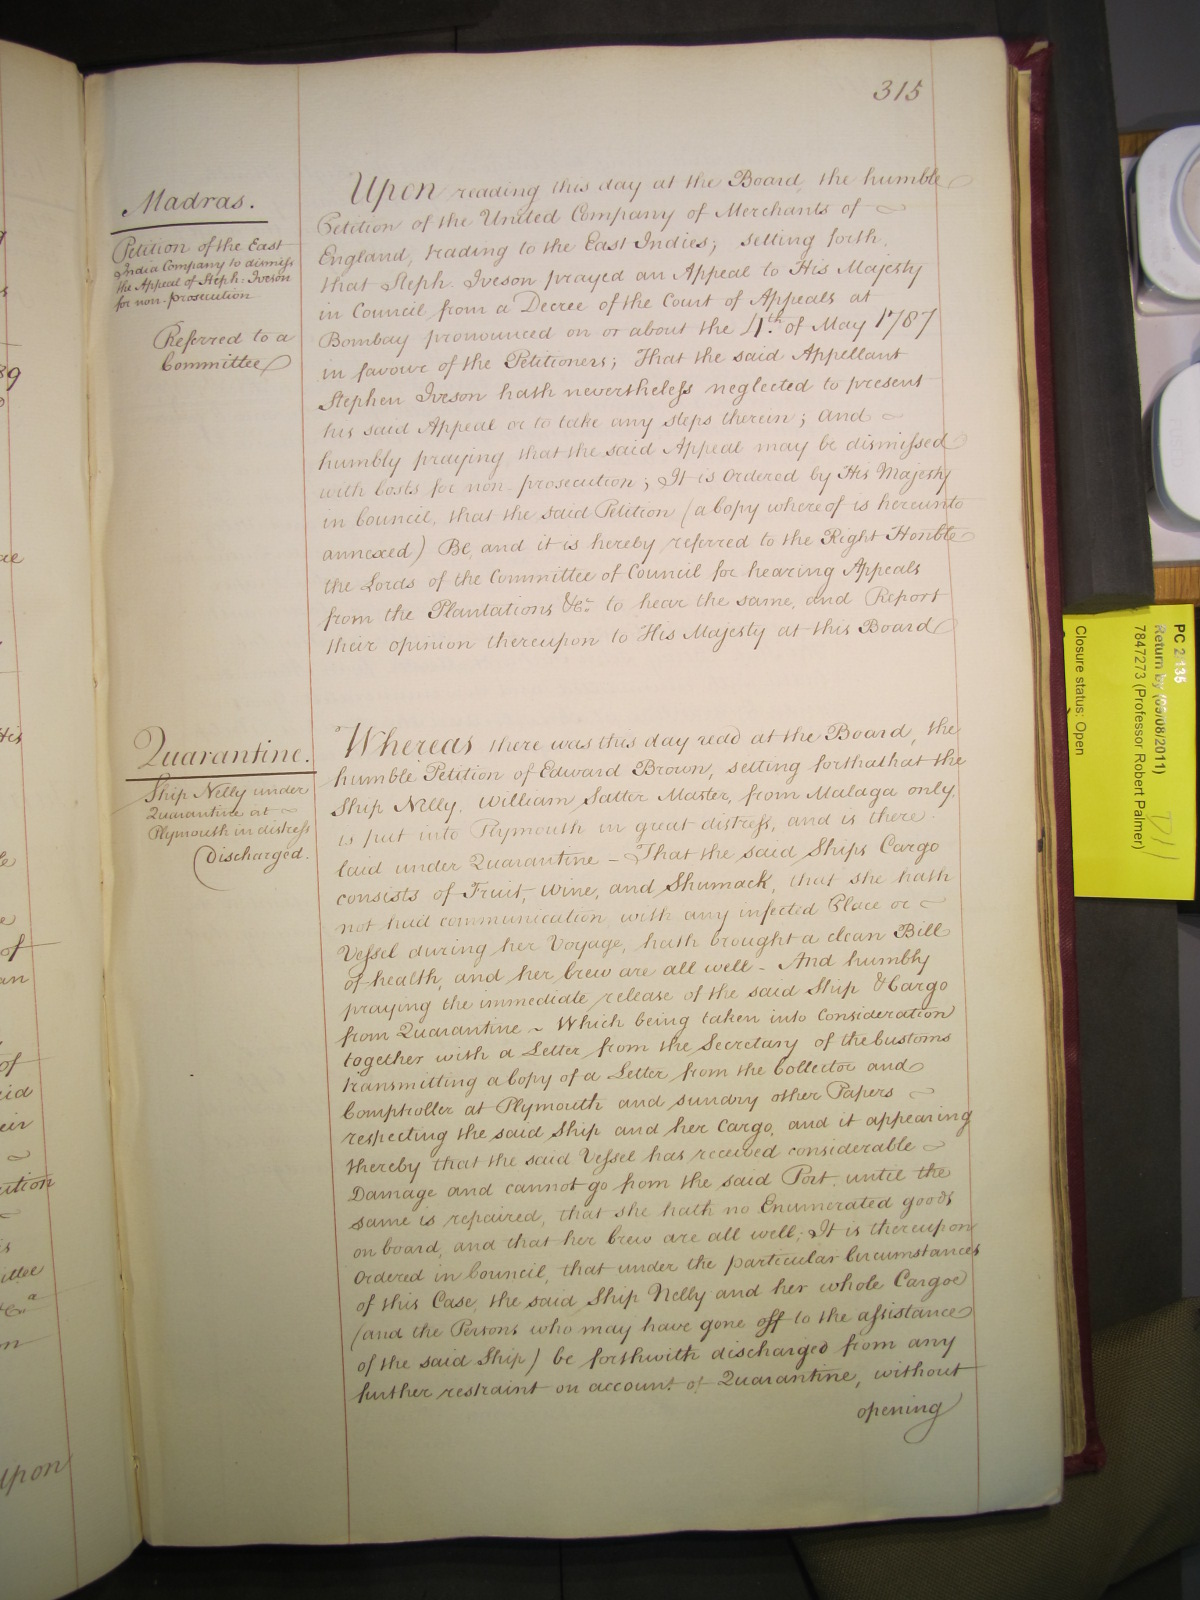 315
Madras.
Petition of the East
India Company to dismiss
the Appeal of Steph: Iveson
for non-prosecution
Referred to a
Committee
Upon reading this day at the Board, the humble
Petition of the United Company of Merchants of
England, trading to the East Indies; setting forth,
that Steph. Iveson prayed an Appeal to His Majesty
in Council from a Decree of the Court of Appeals at
Bombay pronounced on or about the 4th. of May 1787
in favour of the Petitioners; That the said Appellant
Stephen Iveson hath nevertheless neglected to present
his said Appeal or to take any steps therein; And
humbly praying that the said Appeal may be dismissed
with Costs for non prosecution; It is Ordered by His Majesty
in Council, that the said Petition (a Copy whereof is hereunto
annexed) Be, and it is hereby referred to the Right Honble
the Lords of the Committee of Council for hearing Appeals
from the Plantations &c. to hear the same, and Report
their opinion thereupon to His Majesty at this Board
Quarantine.
Ship Nelly under
Quarantine at
Plymouth in distress
Discharged.
Whereas there was this day read at the Board, the
humble Petition of Edward Brown, setting forth that the
Ship Nelly, William Salter Master, from Malaga only,
is put into Plymouth in great distress, and is there
laid under Quarantine – That the said Ships Cargo
consists of Fruit, Wine, and Shumack, that she hath
not had communication with any infected Place or
Vessel during her Voyage, hath brought a clean Bill
of health, and her Crew are all well – And humbly
praying the immediate release of the said Ship & Cargo
from Quarantine ~ Which being taken into Consideration
together with a Letter from the Secretary of the Customs
transmitting a Copy of a Letter from the Collector and
Comptroller at Plymouth and sundry other Papers
respecting the said Ship and her Cargo, and it appearing
thereby that the said Vessel has received considerable
Damage and cannot go from the said Port until the
same is repaired, that she hath no Enumerated goods
on board, and that her Crew are all well; It is thereupon
Ordered in Council, that under the particular Circumstances
of this Case, the said Ship Nelly and her whole Cargoe
(and the Persons who may have gone off to the assistance
of the said Ship) be forthwith discharged from any
further restraint on account of Quarantine, without
opening
PC 2/135
Return by (09/08/2011)
7847273 (Professor Robert Palmer)
Closure status: Open